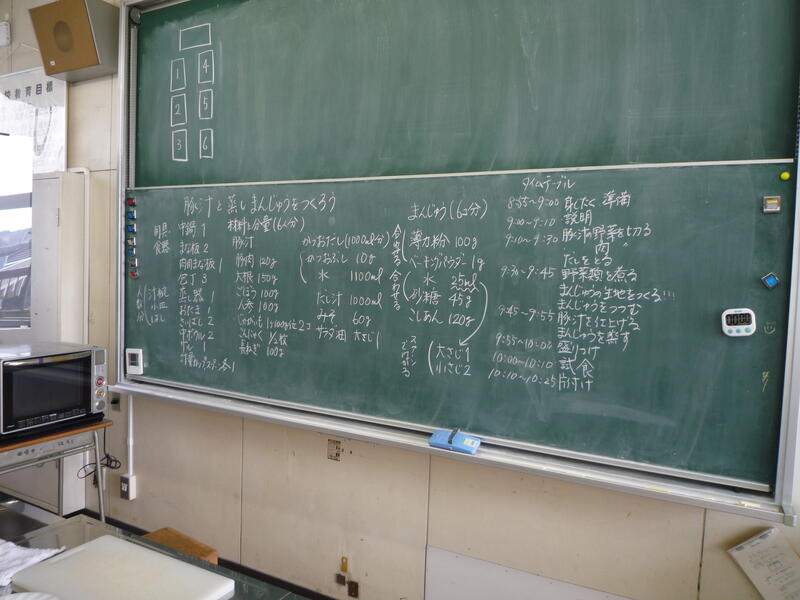 校教育目標
1 4
2 5
3 6
豚汁と蒸しまんじゅうをつくろう
用具
食器
中鍋 1
まな板 2
肉用まな板 1
包丁 3
蒸し器 1
おたま 1
さいばし 2
中ボウル 2
ザル
計量カップスプーン各1
汁椀
小皿
はし
材料と分量(6人分)
豚汁
豚肉 120g
大根 150g
ごぼう 100g
人参 100g
じゃがいも
こんにゃく 1/2枚
長ねぎ 100g
かつおだし(1000ml分)
かつおぶし 10g
水 1100ml
だし汁 1000ml
みそ 60g
サラダ油 大さじ1
まんじゅう(6コ分)
合わせる
薄力粉 100g
ベーキングパウダー 1g
合わせる
水 25ml
砂糖 45g
こしあん 120g
大さじ1
小さじ2
タイムテーブル
8:55~9:00 身じたく 準備
9:00~9:10 説明
9:10~9:30 豚汁野菜を切る
肉〃
だしをとる
9:30~9:45 野菜類を煮る
まんじゅうの生地をつくる!!!
まんじゅうをつつむ
9:45~9:55 豚汁を仕上げる
まんじゅうを蒸す
9:55~10:00 盛りつけ
10:00~10:10 試食
10:10~10:25 片付け